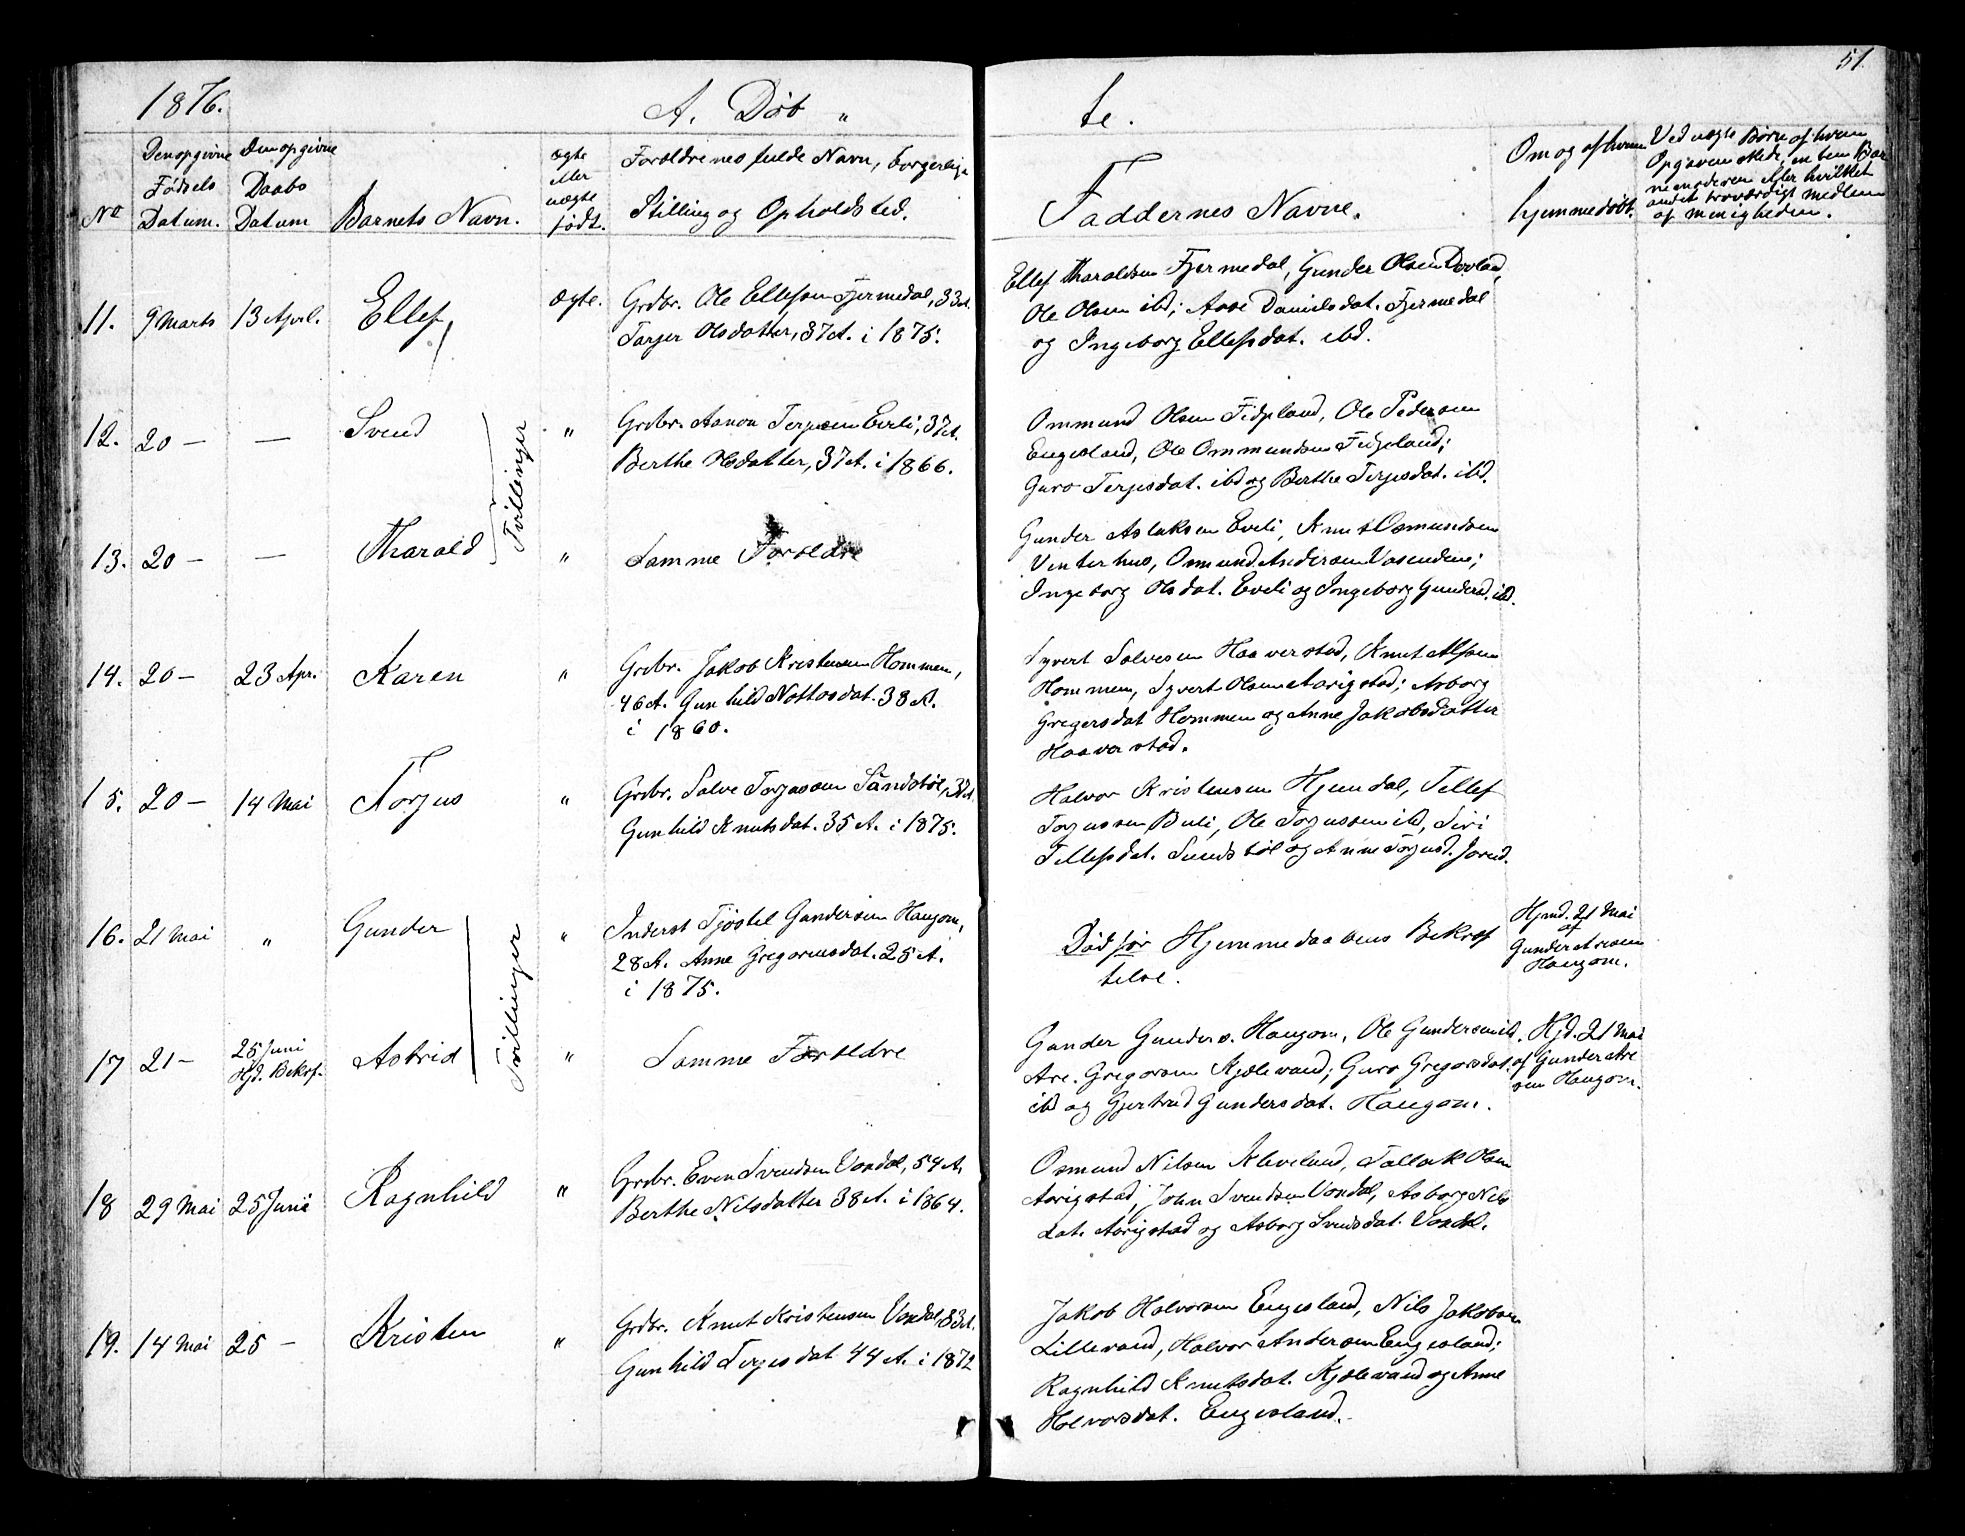 51
1876.
A. Døb „ te.
No
Den opgivne
Fødsels
Datum.
Den opgivne
Daabs
Datum
Barnets Navn.
ægte
eller
uægte
født.
Forældrenes fulde Navn, borgerlige
Stilling og Opholdsted.
Faddernes Navne.
Om og af hvem
hjemmedøbt.
Ved uægte Børn af hvem
Opgaven skede, om
af menigheden.
11. 9 Marts 13 April. Ellef ægte.
Grdbr. Ole Ellefsen Fjermedal, 33 A.
Tarjer Olsdatter, 37 A. i 1875.
Ellef Tharaldsen Fjermedal, Gunder Olsen
Ole Olsen ibd; Aase Danielsdat. Fjermedal
og Ingeborg Ellefsdat. ibd.
12. 20 — — Svend „
Tvillinger
Grdbr. Aanon Terjesen Eveli, 37 A.
Berthe Olsdatter, 37 A. i 1866.
Ommund Olsen Fidjeland, Ole Pedersen
Engesland, Ole Ommundsen Fidjeland;
Guro Terjesdat. ibd og Berthe Terjesdat. ibd.
13. 20 — — Tharald „
Samme Forældre
Gunder Aslaksen Eveli, Knut Osmundsen
Vinterhus, Osmund Andersen Vasendene;
Ingeborg Olsdat. Eveli og Ingeborg Gundersd. ibd.
14. 20 — 23 Apr. Karen „
Grdbr. Jakob Kristensen Hommen,
46 A. Gunhild Nottosdat. 38 A.
i 1860.
Syvert Salvesen Haaverstad, Knut
Hommen, Syvert Olsen Aarigstad; Asborg
Gregersdat Hommen og Anne Jakobsdatter
Haaverstad.
15. 20 — 14 Mai Torjus „
Grdbr. Salve Torjussen Sandstøl,
Gunhild Knutsdat. 35 A. i 1875.
Halvor Kristensen Hjemdal, Tellef
Torjussen Buli, Ole Torjussen ibd, Siri
Tellefsdat. Sundstøl og Anne Torjusd.
16. 21 Mai „ Gunder „
Tvillinger
Inderst Tjøstel Gundersen Haugom,
28 A. Anne Gregoriusdat. 25 A.
i 1875.
Død før Hjemmedaabens Bekræf
telse.
Hjmd. 21 Mai
af
Gunder Aresen
Haugom.
17 21 — 25 Juni
Hjd. Bekræf. Astrid „
Samme Forældre
Gunder Gunders. Haugom, Ole Gundersen ibd.
Are. Gregorsen Kjølevand; Guro Gregorsdat.
ibd og Gjertrud Gundersdat. Haugom.
Hjd. 21 Mai
af Gunder Are
sen Haugom.
18 29 Mai 25 Juni Ragnhild „
Grdbr. Even Svendsen Vondal, 54 A.
Berthe Nilsdatter 38 A. i 1864.
Osmund Nilsen Kleveland, Tallak Olsen
Aarigstad; John Svendsen Vondal, Asborg Nils
dat. Aarigstad og Asborg Svensdat. Vondal.
19. 14 Mai 25 — Kristen „
Grdbr. Knut Kristensen Vondal, 33 A.
Gunhild Terjesdat 44 A. i 1872
Jakob Halvorsen Engesland, Nils Jakobsen
Lillevand, Halvor Andersen Engesland;
Ragnhild Knutsdat. Kjølevand og Anne
Halvorsdat. Engesland.